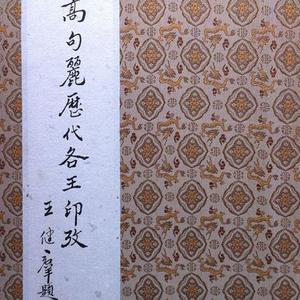 高句麗歷代各王印攷
王健羣題